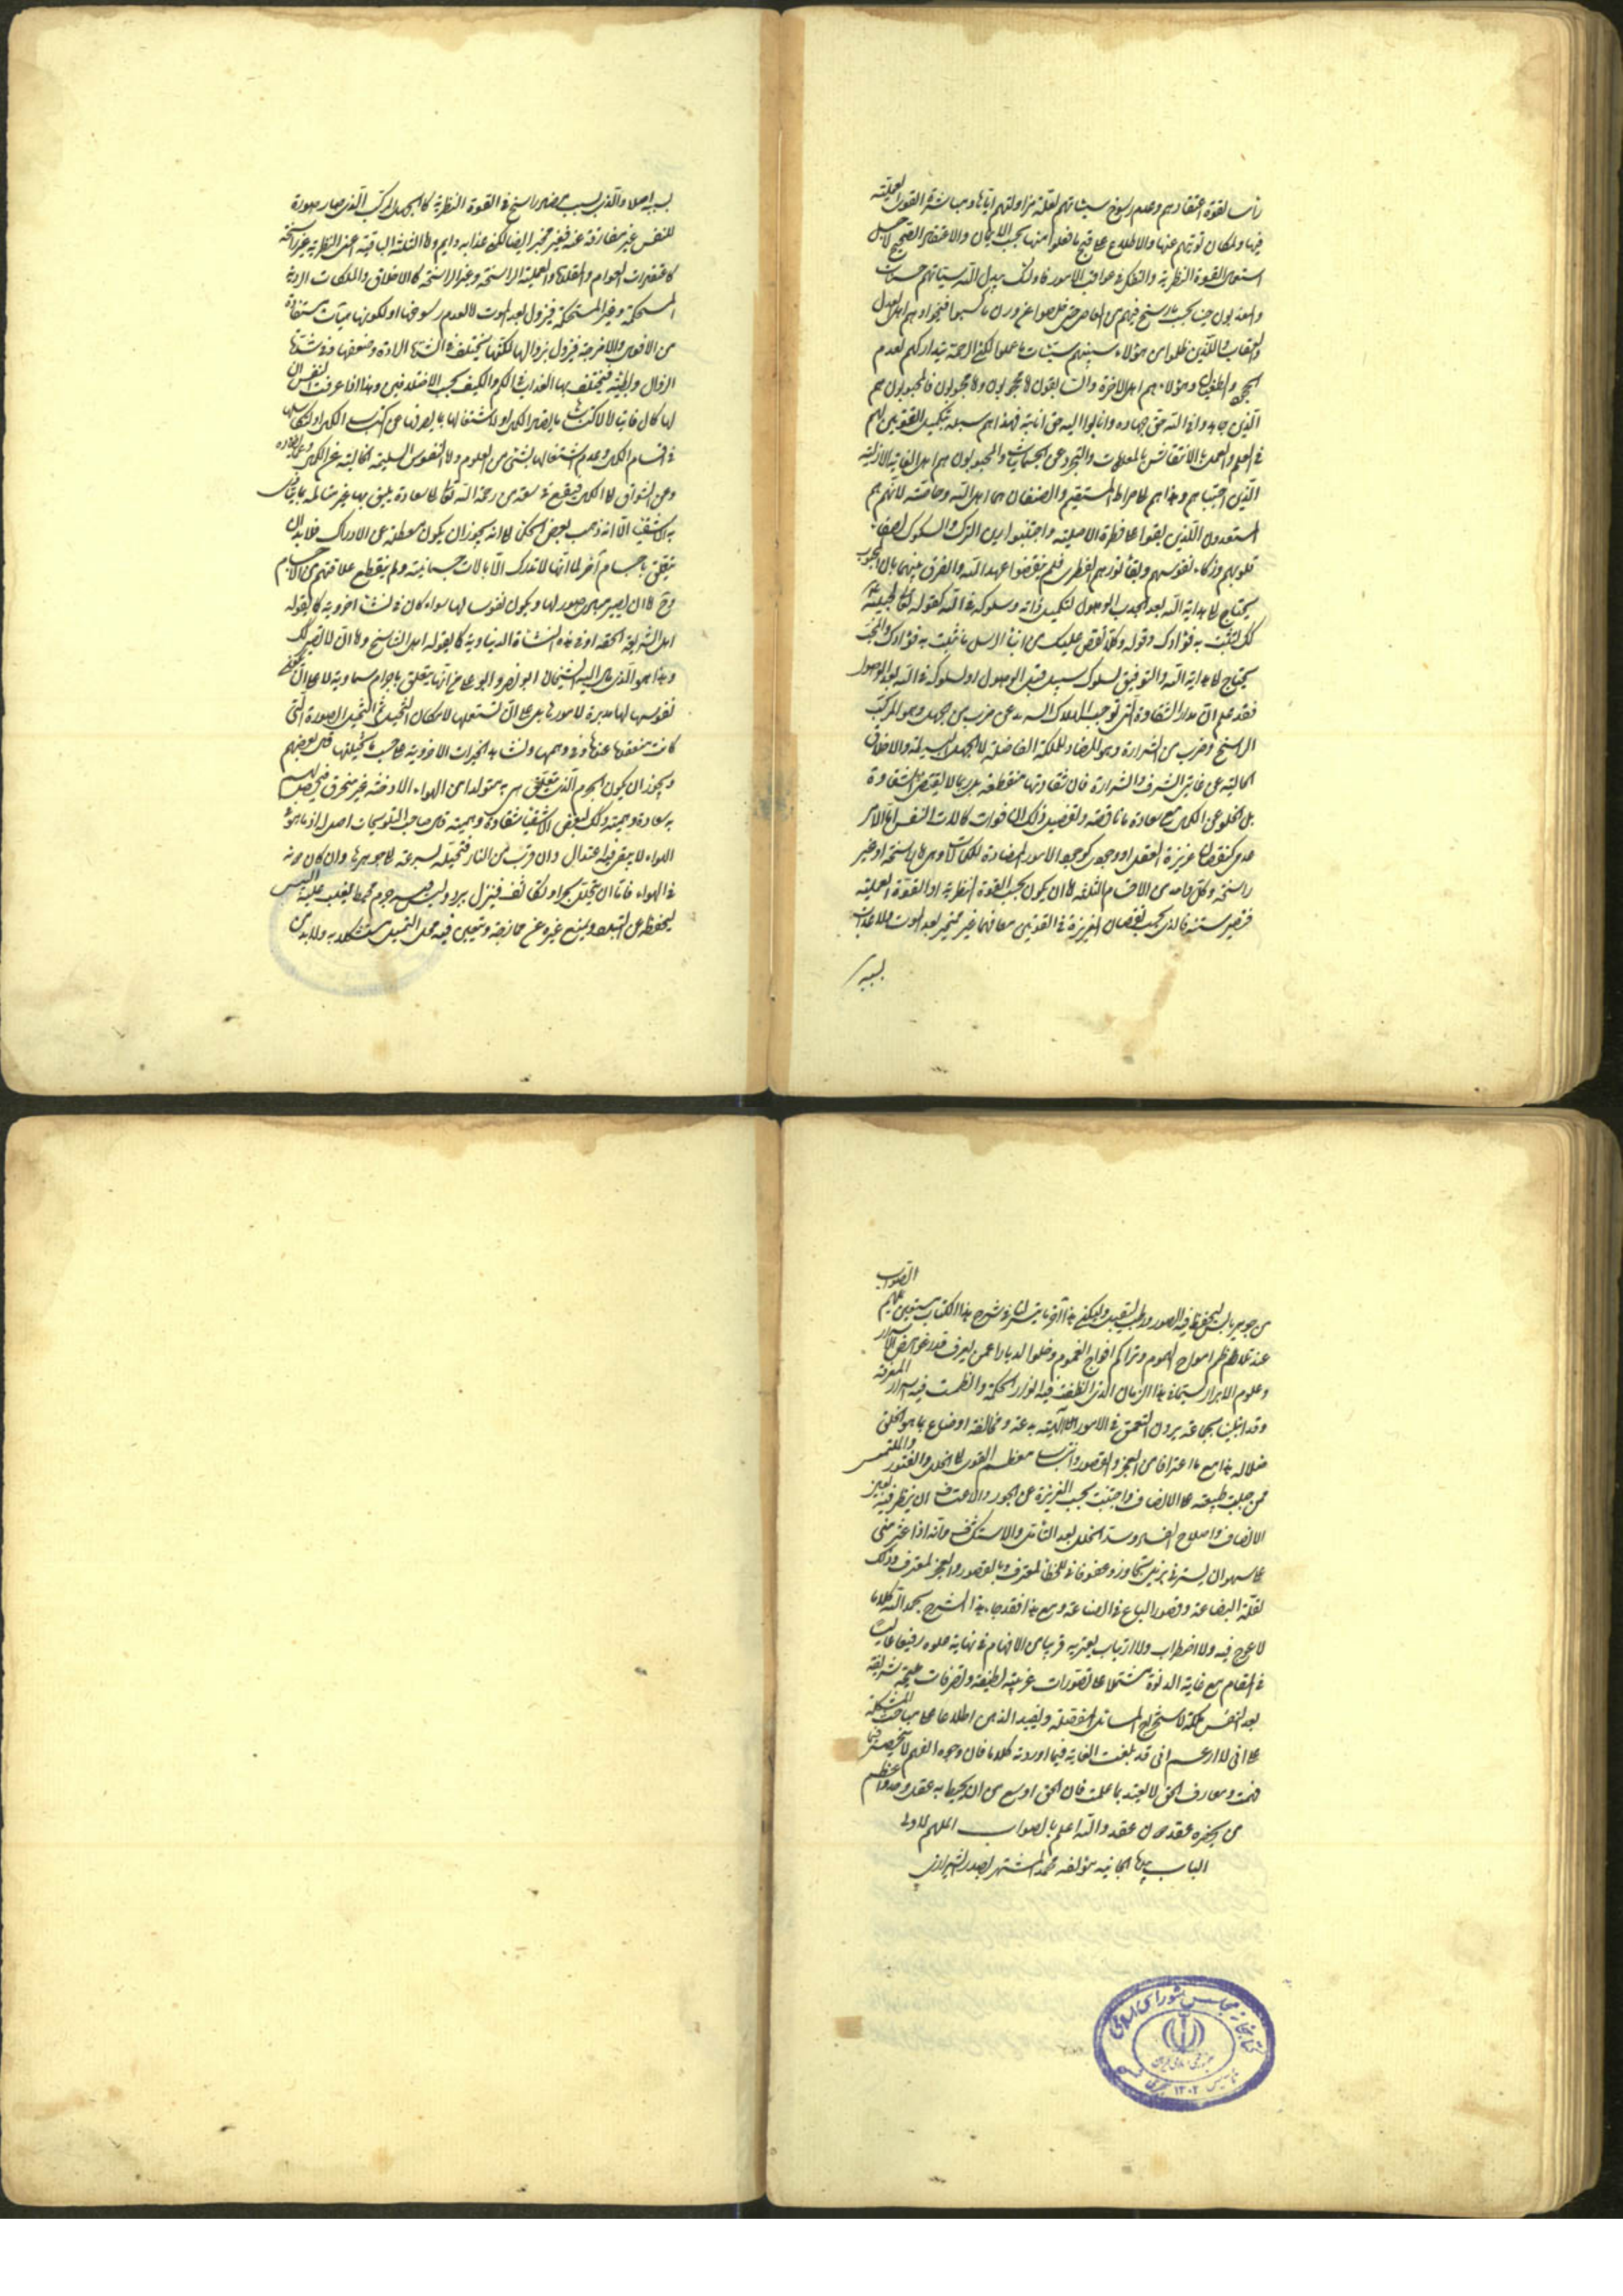 رأسا لقوة اعتقادهم وعدم رسوخ سيئاتهم لقلة مزاولتهم اياها ومباشرة القوى العملية
فيها ولمكان توبتهم عنها والاطلاع على قبح ما فعلوا منها بحسب الايمان والاعتقاد الصحيح لاجل
استعمال القوة النظرية والتفكر فى عواقب الامور فاولئك يبدل الله سيئاتهم حسنات
والمعذبون حينا بحسب ما رسخ فيهم من المعاصى حتى خلصوا عن درن ما كسبوا فنجوا وهم اهل العدل
والعقاب والذين ظلموا من هؤلاء سيصيبهم سيئات ما عملوا لكن الرحمة تتداركهم لعدم
وهؤلاء هم اهل الاخرة والسابقون اما محبون واما محبوبون فالمحبون هم
الذين جاهدوا فى الله حق جهاده وانابوا اليه حق انابته فهداهم سبله بتكميل القوتين لهم
فى العلم والعمل والتجرد عن الجسمانيات والمحبوبون هم اهل العناية الازلية
الذين اجتباهم وهداهم الى صراط المستقيم والصنفان هما اهل الله وخاصته لانهم هم
المستعدون الذين بقوا على فطرة الاصلية واجتنبوا رين الشرك والشكوك لصفاء
قلوبهم وزكاء نفوسهم وبقاء نورهم الفطرى فلم ينقضوا عهد الله والفرق بينهما بان المحبوب
يحتاج الى هداية الله بعد الجذب والوصول لتكميل ذاته وسلوكه فى الله كقوله تعالى لحبيبه
كذلك لنثبت به فؤادك وقوله وكلا نقص عليك من انباء الرسل ما نثبت به فؤادك والمحب
يحتاج الى هداية الله والتوفيق لسلوك سبيله قبل الوصول او لسلوكه فى الله بعد الوصول
فقد علم ان مدار الشقاوة التى توجب الهلاك السرمدى ضرب من الجهل وهو المركب
الراسخ وضرب من الشرارة وهو المضاد للملكة الفاضلة لا الجهل البسيط والاخلاق
الخالية عن غايتى الشرف والشرارة فان شقاوتها منقطعة بل ربما لا يقتضى الشقاوة
بل الخلو عن الكمال مع سعادة ما ناقصة وتفصيل ذلك ان فوات كمالات النفس اما لامر
عدمى كنقصان غريزة العقل او وجودى كوجود الامور المضادة للكمالات وهى اما راسخة او غير
راسخة وكل واحد من الاقسام الثلثة اما ان يكون بحسب القوة النظرية او القوة العملية
فتصير ستة فالذى بحسب نقصان الغريزة فى القوتين معا فهما غير منجبر بعد الموت ولا عذاب
بسببه
بسببه اصلا والذى بسبب مضاد راسخ فى القوة النظرية كالجهل المركب الذى صار صورة
للنفس غير مفارقة عنه فغير منجبر ايضا لكن عذابه دايم واما الثلثة الباقية اعنى النظرية غير الراسخة
كاعتقادات العوام والمقلدة والعملية الراسخة وغير الراسخة كالاخلاق والملكات الردية
المستحكمة وغير المستحكمة فيزول بعد الموت لا لعدم رسوخها او لكونها هيآت مستفادة
من الافعال والامزجة فيزول بزوالها لكنها تختلف فى شدة الرداءة وضعفها وفى سرعة
الزوال وبطئه فيختلف بها العذاب بالكم والكيف بحسب الاختلافين وهذا اذا عرفت النفس ان
لها كمالا فايتا لاكتسابها ما يضاد الكمال او لاشتغالها بما يصرفها عن كسب الكمال او لتكاسلها
فى اقتناء الكمال وعدم اشتغالها بشئ من العلوم واما النفوس السليمة الخالية عن الكمال وعما يضاده
وعن الشوق الى الكمال فيبقى فى سعة من رحمة الله تعالى الى سعادة تليق بها غير متألمة بما يتأذى
به الاشقياء الا انه ذهب بعض الحكماء الى انه لا يجوز ان يكون معطلة عن الادراك فلا بد ان
يتعلق باجسام أخر لما انها لا تدرك الا بآلات جسمانية ولم ينقطع علاقتهم من الاجسام
وح اما ان يصير مبادى صور لها ويكون نفوسا لها سواء كان فى نشأة اخروية كما يقوله
اهل الشريعة الحقة او فى هذه النشأة الدنياوية كما يقوله اهل التناسخ واما ان لا تصير كذلك
وهذا هو الذى مال اليه الشيخان ابو نصر وابو على من انها يتعلق باجرام سماوية لا على ان يكون
نفوسها لها مدبرة لامورها بل على ان تستعملها لامكان التخيل ثم تتخيل الصورة التى
كانت معتقدة عنها وفى وهمها وتشاهد الخيرات الاخروية على حسب ما تخيلتها قال بعضهم
ويجوز ان يكون الجرم الذى يتعلق به متولدا من الهواء والادخنة غير منخرق فيحصل لهم
به سعادة وهمية وكذلك لبعض الاشقياء شقاوة وهمية قال صاحب التلويحات اصل له اذ ما هو فى
الهواء لا يبقى فيه اعتدال وان قرب من النار فتحيله لسرعة الى جوهرها وان كان دونه
فى الهواء فاما ان يتخلل بحر او يتكاثف فينزل ببرد وليس فيه جرم محيط يغلب عليه اليبس
ليحفظه عن التبدد ويمنع غيره عن ممازجته ويتعين فيه محل التخيل متشكلا به ولا بد من
الصواب
من جوهر يابس ليتحفظ فيه الصور ورطب للتقبيل وليكن هذا آخر ما تيسر لنا فى شرح هذا الكتاب مستعين بملهم
عند تلاطم امواج الهموم وتراكم افواج الغموم وخلوا الديار عمن يعرف قدر غوامض الاسرار
وعلوم الابرار سيما فى هذا الزمان الذى انطفت فيه انوار الحكمة وانطمست فيه اسرار المعرفة
وقد ابتلينا بجماعة يرون التعمق فى الامور الالهية بدعة ومخالفة اوضاع جماهير الخلق
ضلالة هذا مع اعترافا منى العجز والقصور وانتساب معظم القوى الى الخلل والفتور والملتمس
ممن جبلت طبيعته على الانصاف واجتنبت بحسب الغريزة عن الجور والاعتساف ان ينظر فيه بعين
الانصاف واصلاح الفساد وسد الخلل بعد التأمل والاستكشاف وانه اذا عثر منى
على سهو ان يستر فى بذيل تجاوز وعفو فانى للخطأ لمعترف وبالقصور والعجز لمعترف وذلك
لقلة البضاعة وقصور الباع فى الصناعة ومع هذا فقد جاء هذا الشرح بحمد الله كلاما
لا عوج فيه ولا اضطراب ولا ارتياب يعتريه قريبا من الافهام فى نهاية علوه رفيعا عاليا
فى المقام مع غاية الدنو مشتملا على تصورات غريبة لطيفة وتصرفات عجيبة شريفة
يعد النفس ملكة لاستخراج المسائل المعضلة ويفيد الذهن اطلاعا على مباحث المشكلة
على انى لا ازعم انى قد بلغت الغاية فيما اوردته كلاما فان وجوه الفهم لا تنحصر فيما
فهمت ومعارف الحق لا يتقيد بما علمت فان الحق اوسع من ان يحيط به عقل وحد واعظم
من ان يحصره عقد دون عقد والله اعلم بالصواب الملهم لاولى
الباب مؤلفه محمد المشتهر بصدر الشيرازى
كتابخانه مجلس شوراى اسلامى
جمهورى اسلامى ايران
تأسيس ١٣٠٢ هجرى